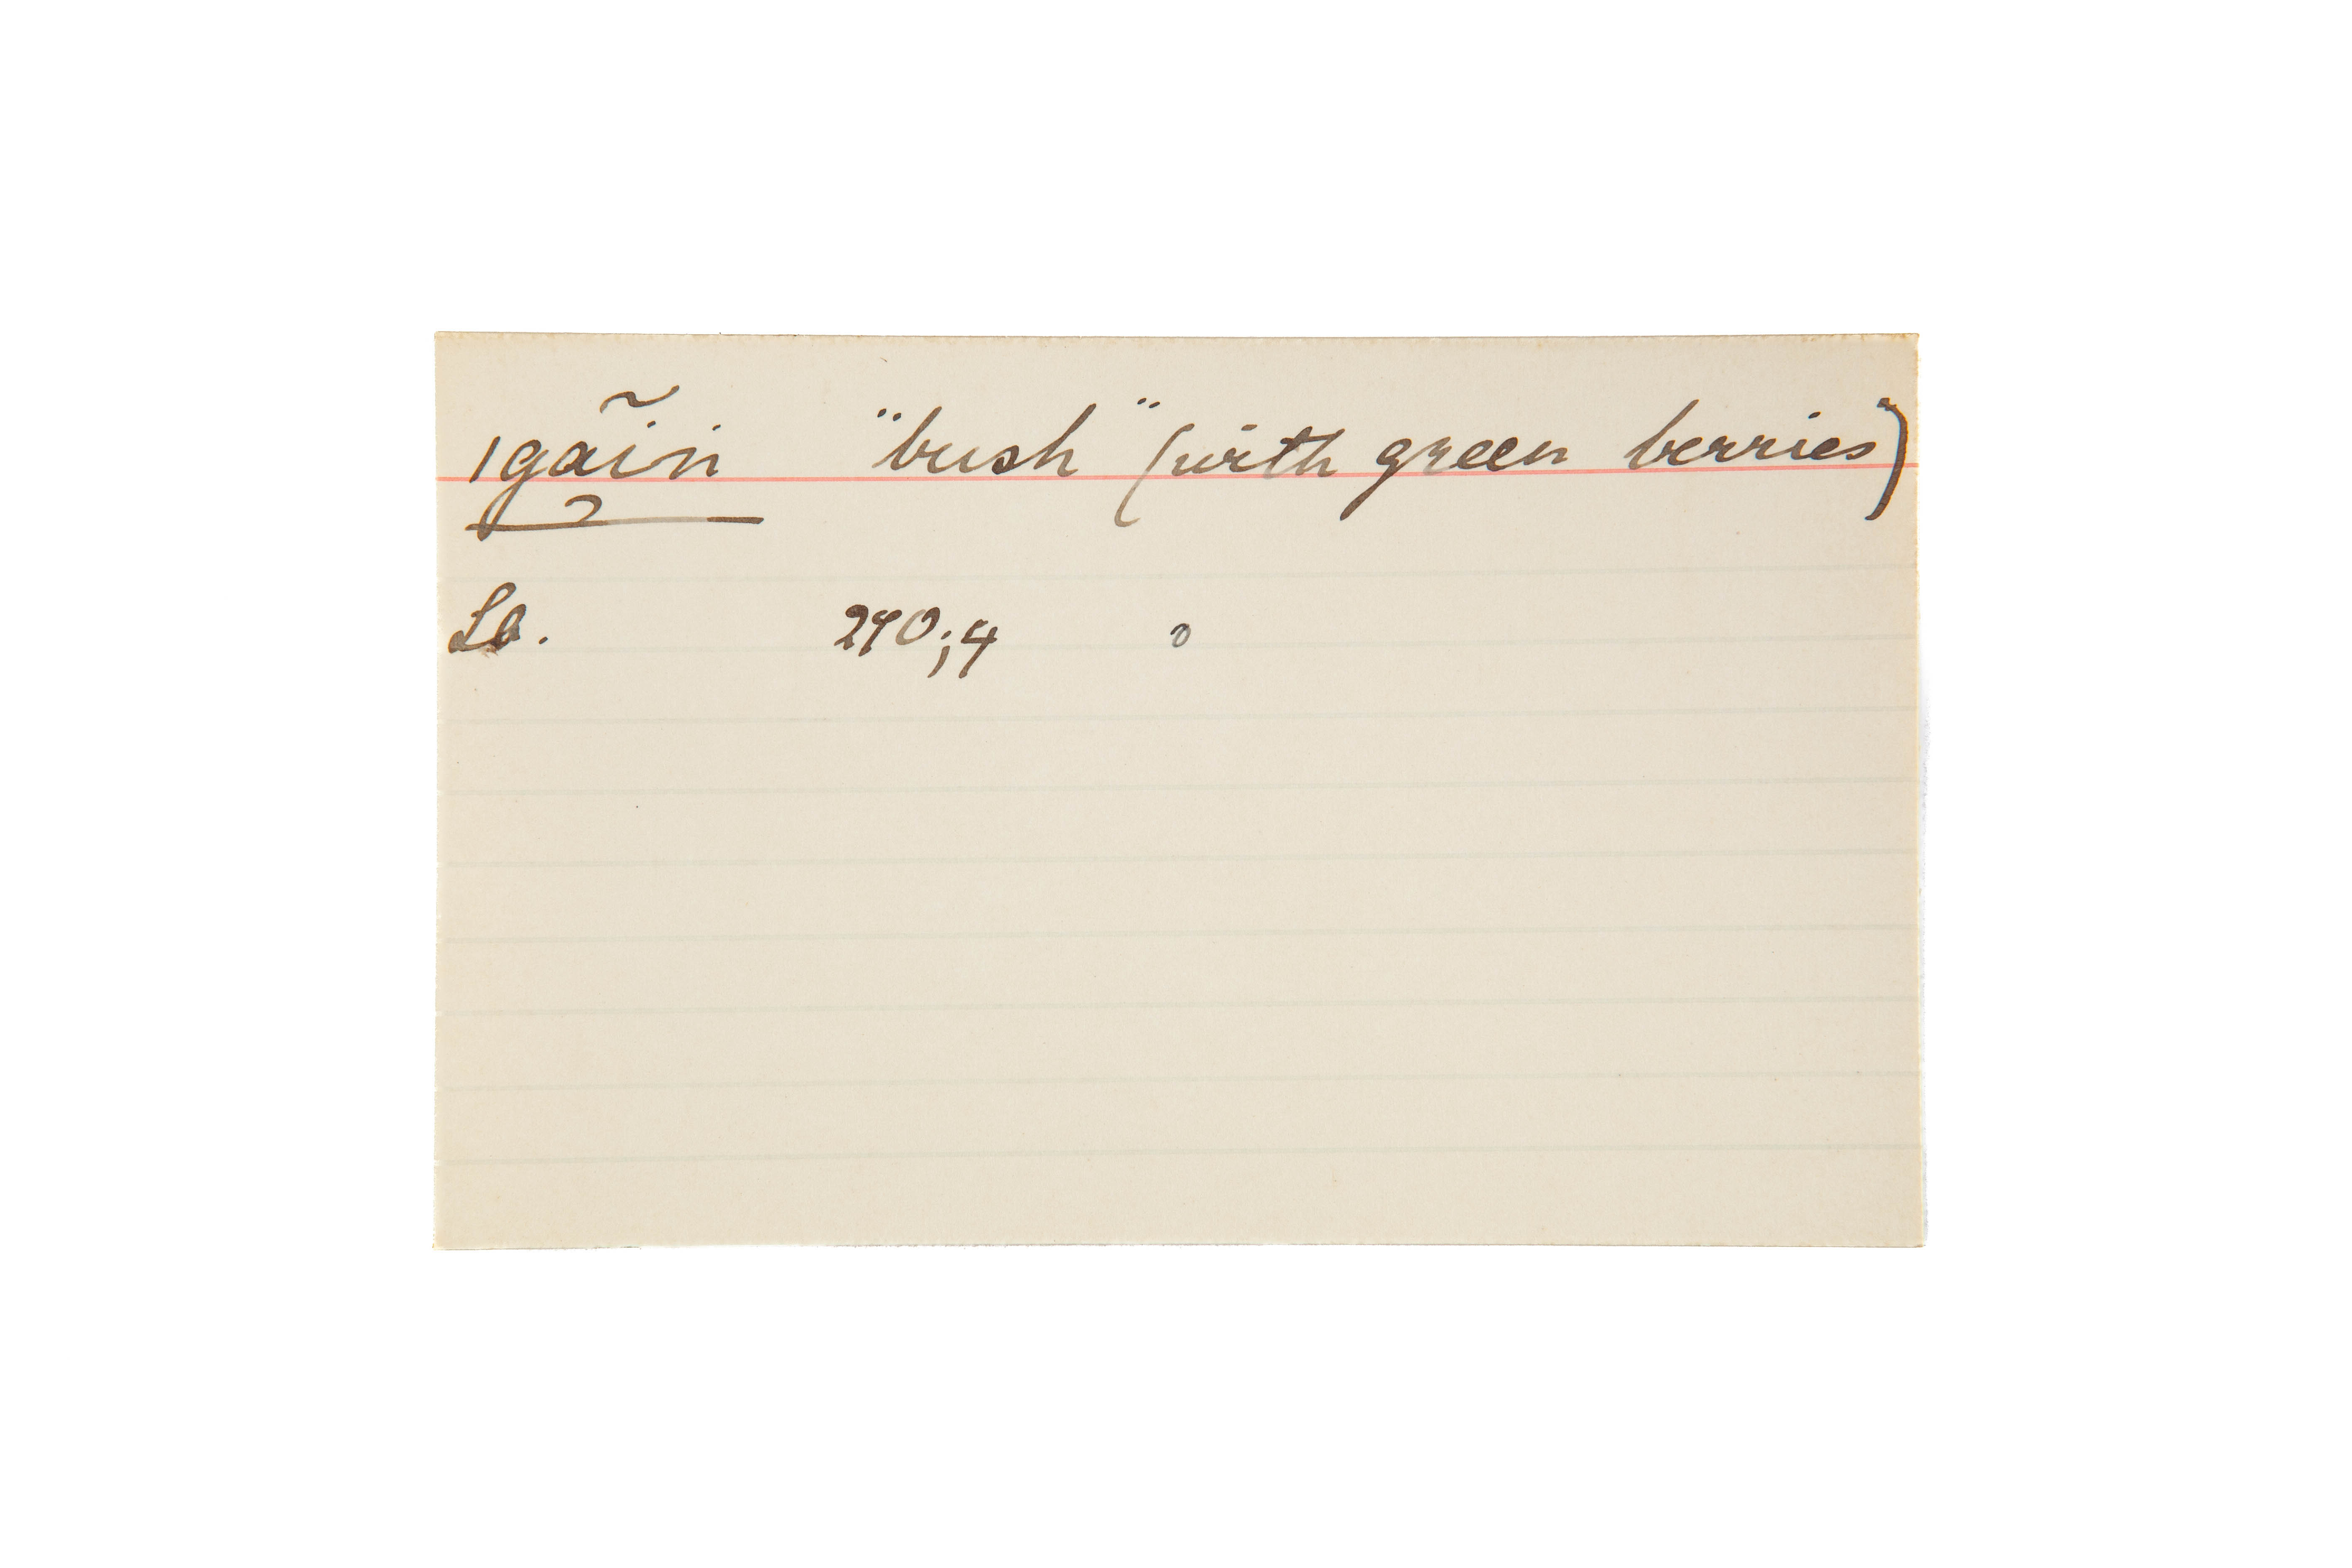 |gãin "bush" (with green berries)
Lb. 290;4 o